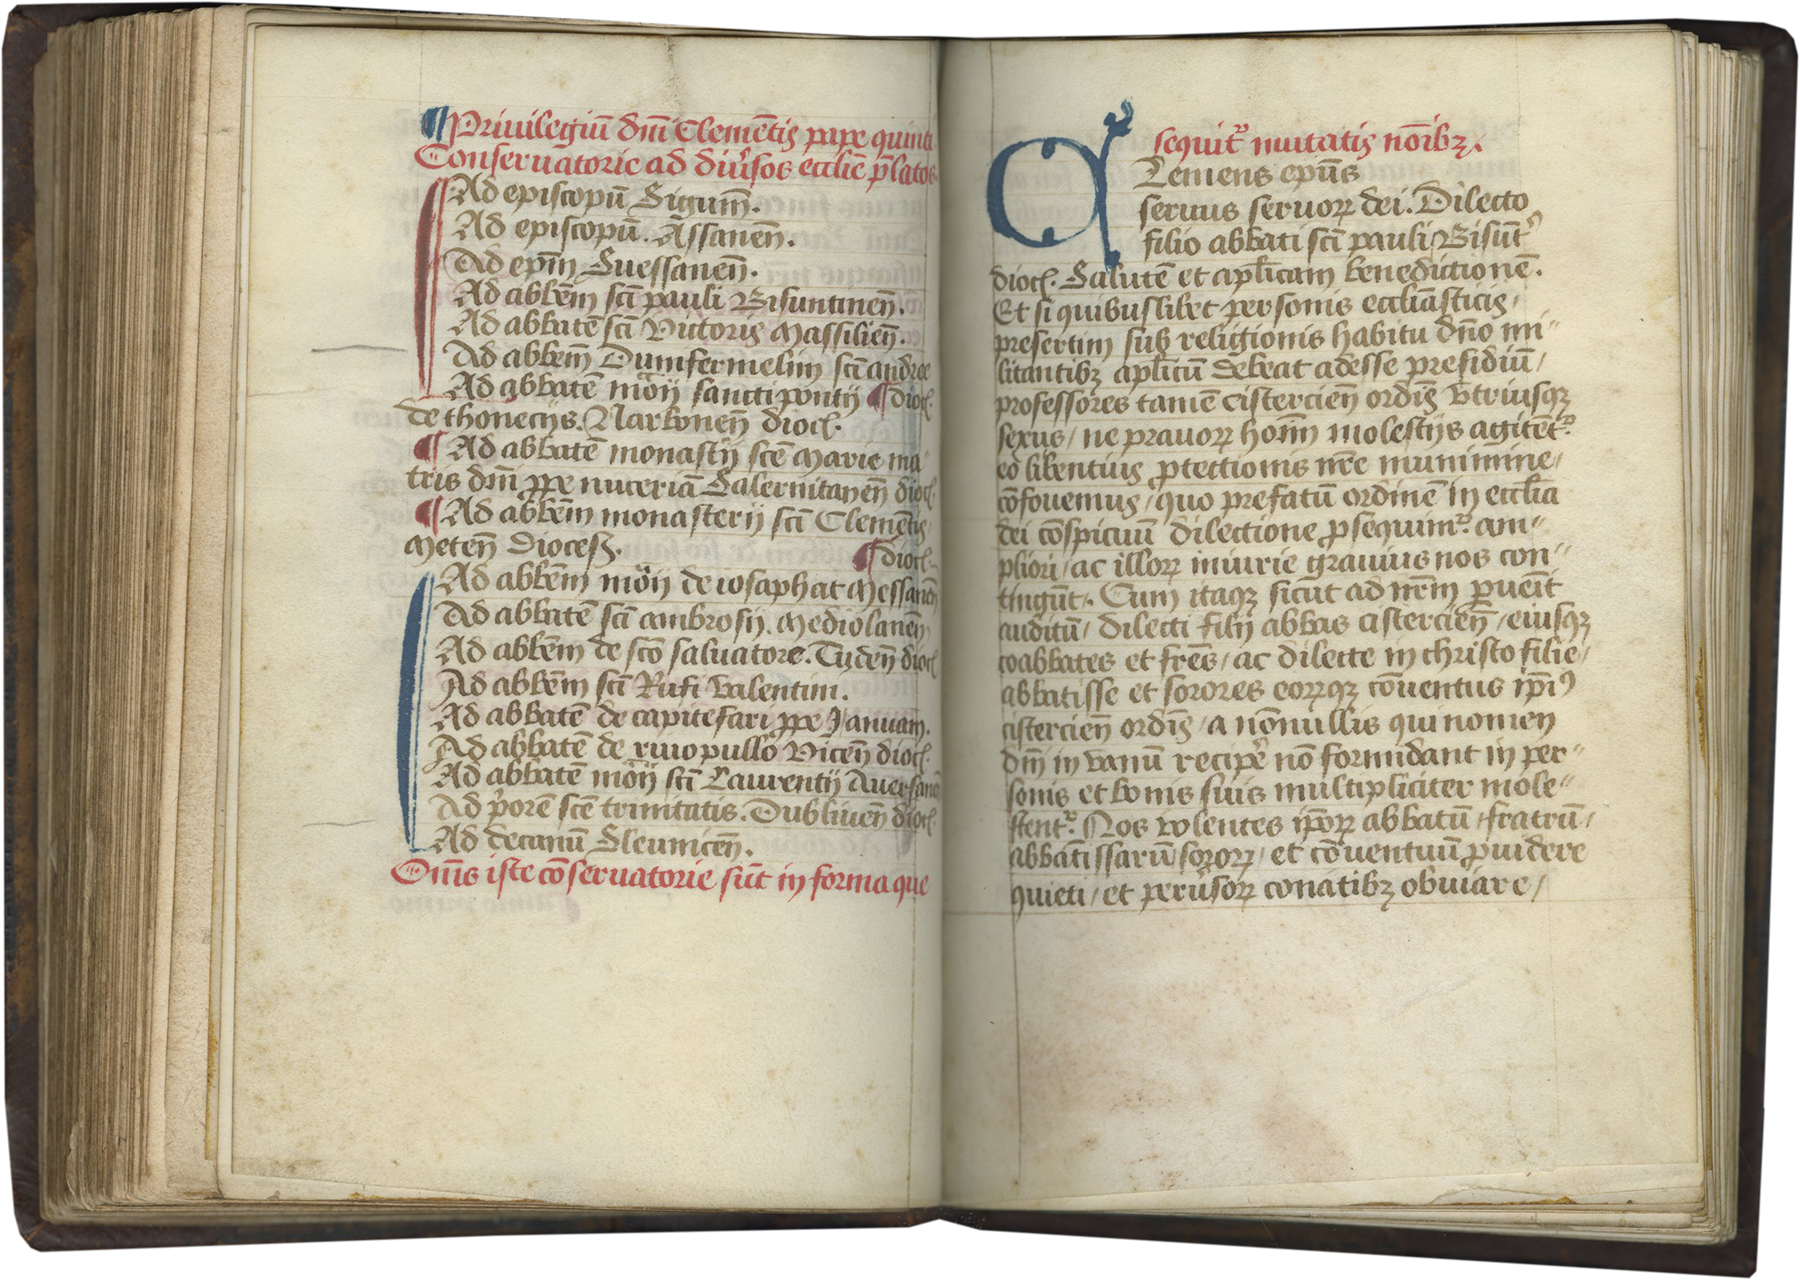 ¶ Priuilegiū dnī Clemētis pape quinti
Conseruatorie ad diūsos ecclīe p̄latos
Ad episcopū Sigum̄.
Ad episcopū. Assanen̄.
Ad ep̄m Suessanen̄.
Ad abbēm scī pauli Bisuntinen̄.
Ad abbatē scī Victoris Massilien̄.
Ad abbem̄ Dumfermelim scī andree
Ad abbatē mōij sancti pontij ¶ dioc̄.
de thonerijs. Narbonen̄ dioc̄.
¶ Ad abbatē monastij scē Marie ma
tris dnī ꝓpe nuceriā Salernitanen̄ dioc̄.
¶ Ad abbēm monasterij scī Clemētis
Meten̄ Dioceß. ¶ dioc̄.
Ad abbēm mōij de iosaphat Messanen̄
Ad abbatē scī ambrosij. Mediolanen̄
Ad abbēm de scō saluatore. Tyden̄ dioc̄
Ad abbēm scī Rufi Valentim.
Ad abbatē de capite fari ꝓpe Januam̄.
Ad abbatē de riuopullo Vicen̄ dioc̄.
Ad abbatē mōij scī Laurentij Auersanen̄
Ad p̄orē scē trinitatis. Dublinen̄ dioc̄.
Ad decanū Sleuuicen̄.
Om̄s iste cōseruatorie sūt in forma que
sequit᷑ mutatis nōibꝫ.
Clemens epūs
seruus seruoꝝ dei. Dilecto
filio abbati scī pauli Bisūt᷑
dioc̄. Salutē et aplīcam benedictionē.
Et si quibuslibet personis ecclīasticis/
presertim sub religionis habitu dn̄o mi⸗
litantibꝫ aplīcū debeat adesse presidiū/
professores tamē cistercien̄ ordīs vtriusqꝫ
sexus/ ne prauoꝝ hoīm molestijs agitēt᷑
eo libentius ꝓtectionis nr̄e munimine/
cōfouemus/ quo prefatū ordinē in ecclīa
dei cōspicuū dilectione ꝓsequim᷑ am⸗
pliori/ ac illoꝝ iniurie grauius nos con⸗
tingūt. Cum itaqꝫ sicut ad nr̄m ꝑueīt
auditū/ dilecti filij abbas cistercien̄/ eiusqꝫ
coabbates et frēs/ ac dilecte in christo filie/
abbatisse et sorores eoꝝqꝫ cōuentus ip̄iꝰ
cistercien̄ ordīs/ a nōnullis qui nomen
dn̄i in vanū recipe᷑ nō formidant in per⸗
sonis et bonis suis multipliciter mole⸗
stent᷑. Nos volentes ip̄oꝝ abbatū/ fratrū/
abbatissarū soroꝝ/ et cōuentuū ꝓuidere
quieti/ et peru̓soꝝ conatibꝫ obuiare/